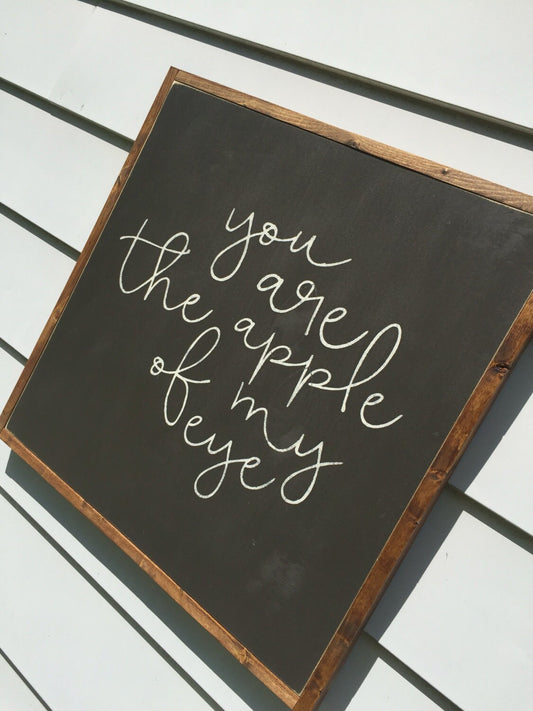 you are
the apple
of my
eye